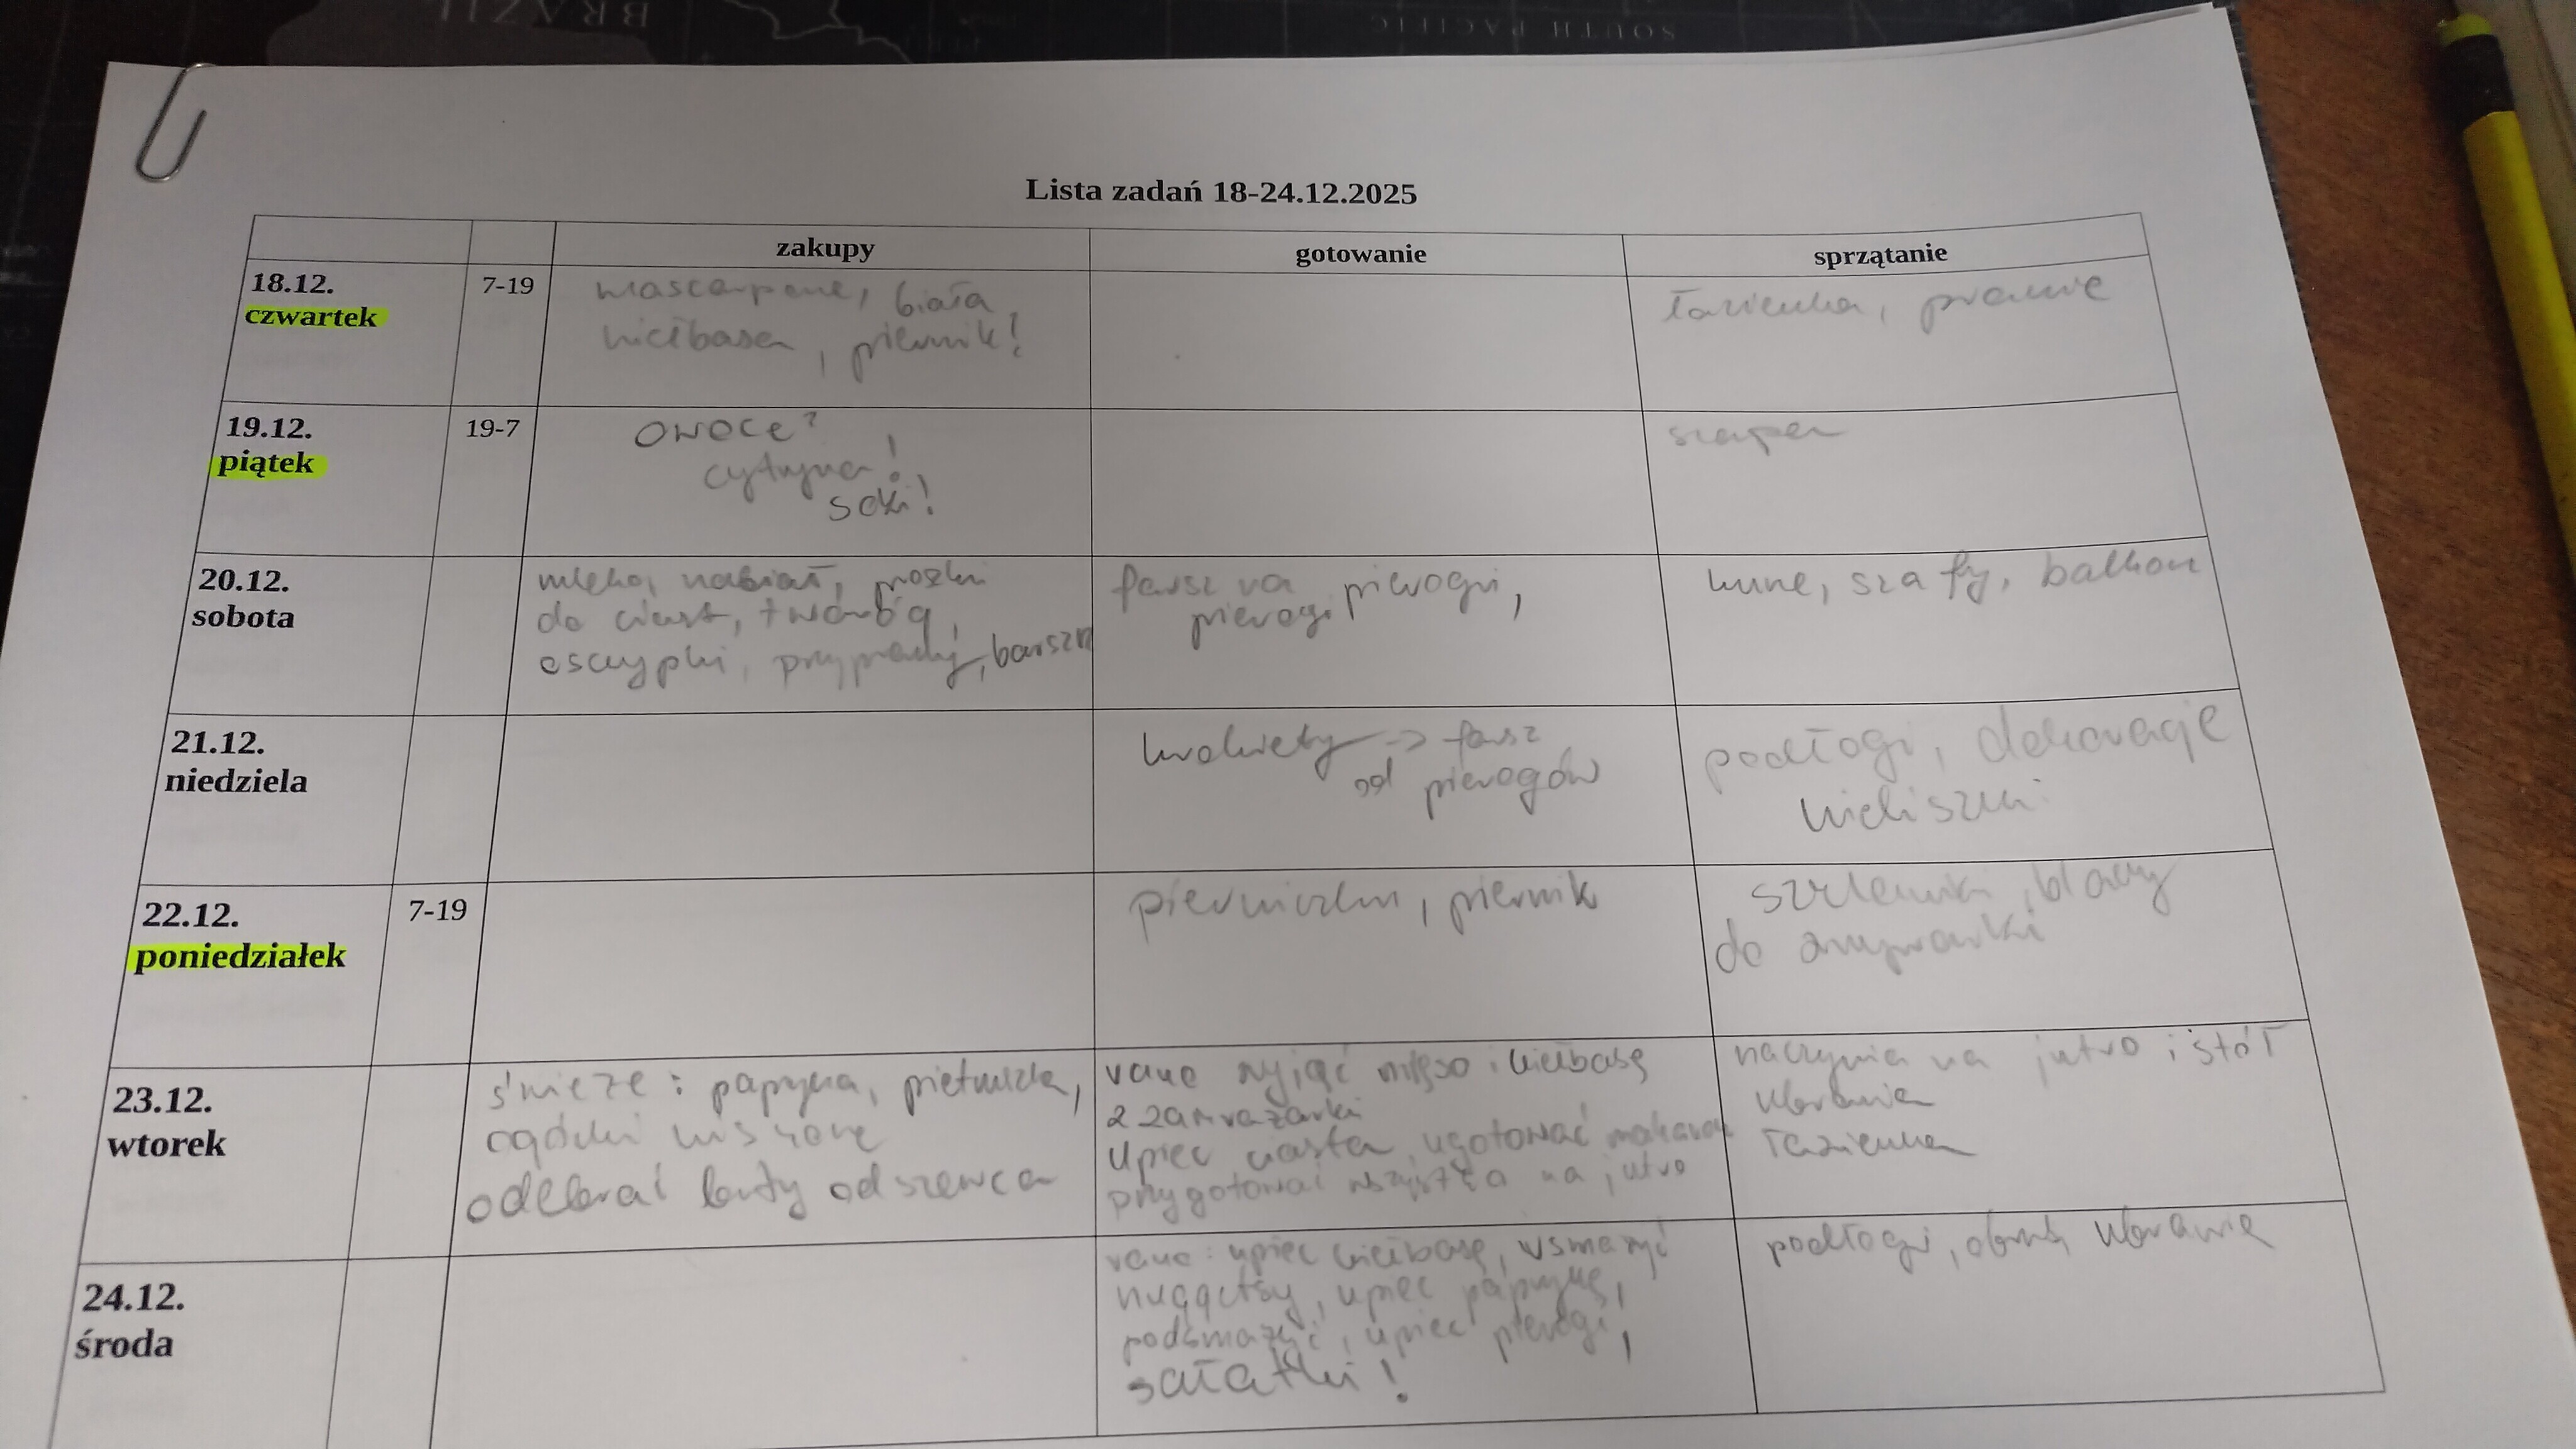 BRAZIL
SOUTH PACIFIC
Lista zadań 18-24.12.2025
zakupy gotowanie sprzątanie
18.12.
czwartek
7-19
mascarpone, biała
kiełbasa, piernik!
łazienka, pranie
19.12.
piątek
19-7
owoce?
cytryna!
soki!
20.12.
sobota
mleko, nabiał, proszki
do ciast, twaróg,
oscypki, przyprawy, barszcz
farsz na
pierogi, pierogi,
szafy, balkon
21.12.
niedziela
krokiety -> farsz
od pierogów
podłogi, dekoracje
kieliszki
22.12.
poniedziałek
7-19
pierniczki, piernik
szklanki, blachy
do zmywarki
23.12.
wtorek
świeże: papryka, pietruszka,
ogórki kiszone
odebrać buty od szewca
rano wyjąć mięso i kiełbasę
z zamrażarki
upiec ciasta, ugotować makaron
przygotować wszystko na jutro
naczynia na jutro i stół
ubrania
łazienka
24.12.
środa
rano: upiec kiełbasę, usmażyć
nuggetsy, upiec paprykę,
podsmażyć, upiec pierogi,
sałatki!
podłogi, obrus, ubranie